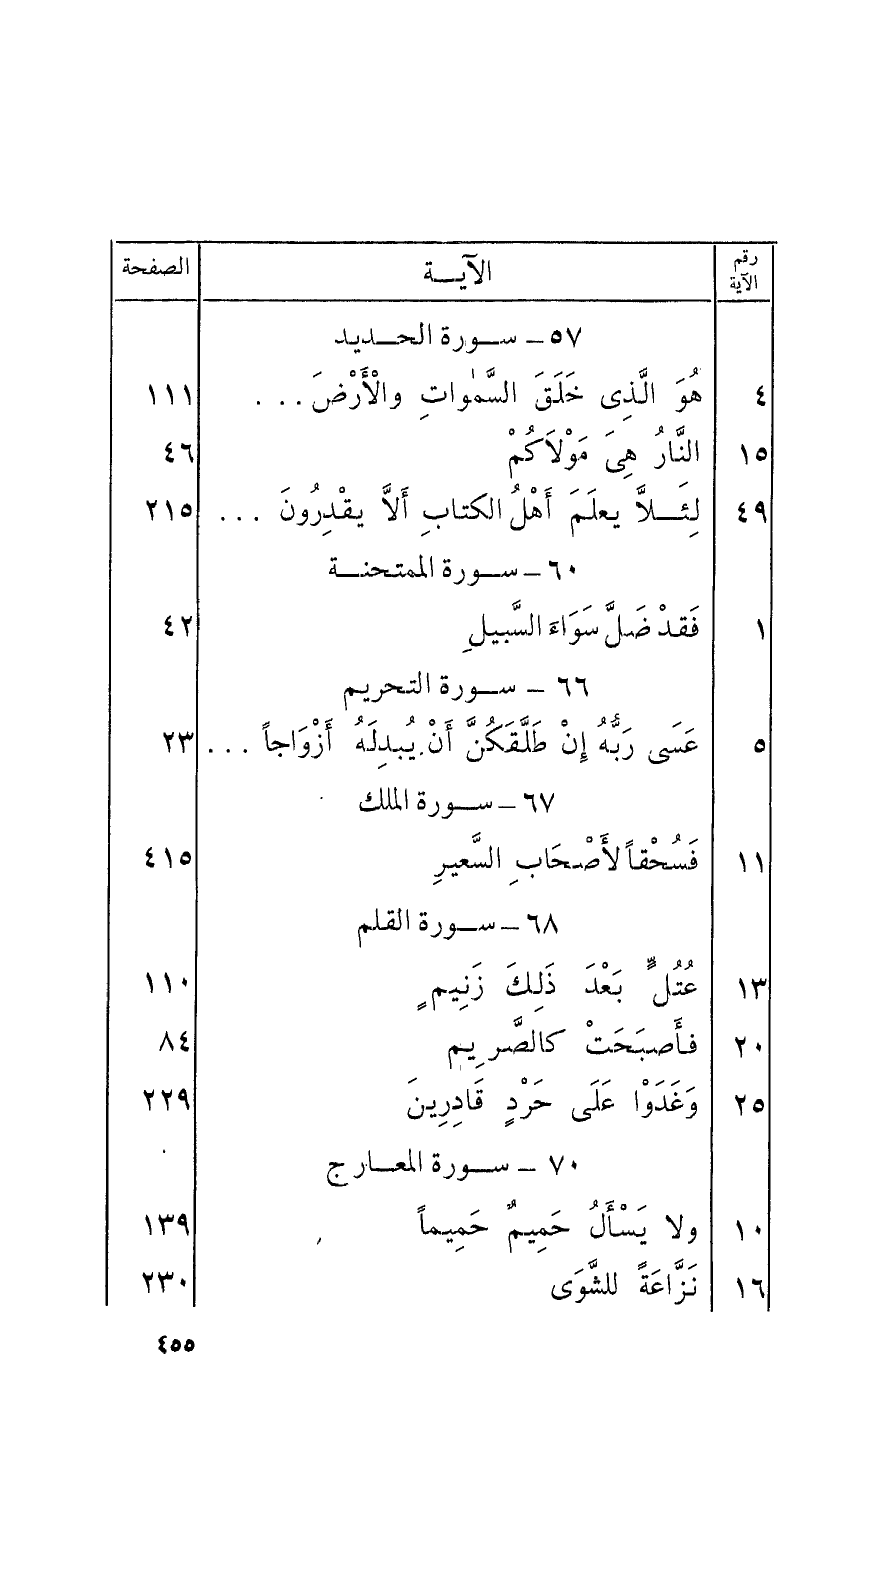 رقم الآية الآيـــة الصفحة
٥٧ – ســورة الحــديد
٤ هُوَ الَّذِى خَلَقَ السَّمٰواتِ والْأَرْضَ . . . ١١١
١٥ النَّارُ هِىَ مَوْلَاكُمْ ٤٦
٤٩ لِئَــلاَّ يعلَمَ أَهْلُ الكتابِ أَلاَّ يقْدِرُونَ . . . ٢١٥
٦٠ – ســورة الممتحنــة
١ فَقدْ ضَلَّ سَوَاءَ السَّبيلِ ٤٢
٦٦ – ســورة التحريم
٥ عَسَى رَبُّهُ إِنْ طَلَّقَكُنَّ أَنْ يُبدِلَهُ أَزْوَاجاً . . . ٢٣
٦٧ – ســورة الملك
١١ فَسُحْقاً لأَصْحَابِ السَّعيرِ ٤١٥
٦٨ – ســورة القلم
١٣ عُتُلٍّ بَعْدَ ذَلِكَ زَنِيمٍ ١١٠
٢٠ فأَصبَحَتْ كالصَّرِيم ٨٤
٢٥ وَغَدَوْا عَلَى حَرْدٍ قَادِرِينَ ٢٢٩
٧٠ – ســورة المعــارج
١٠ ولا يَسْأَلُ حَمِيمٌ حَمِيماً ١٣٩
١٦ نَزَّاعَةً للشَّوَى ٢٣٠
٤٥٥